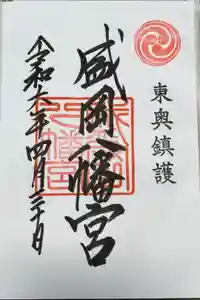 東奥鎮護
盛岡八幡宮
令和六年四月三十日